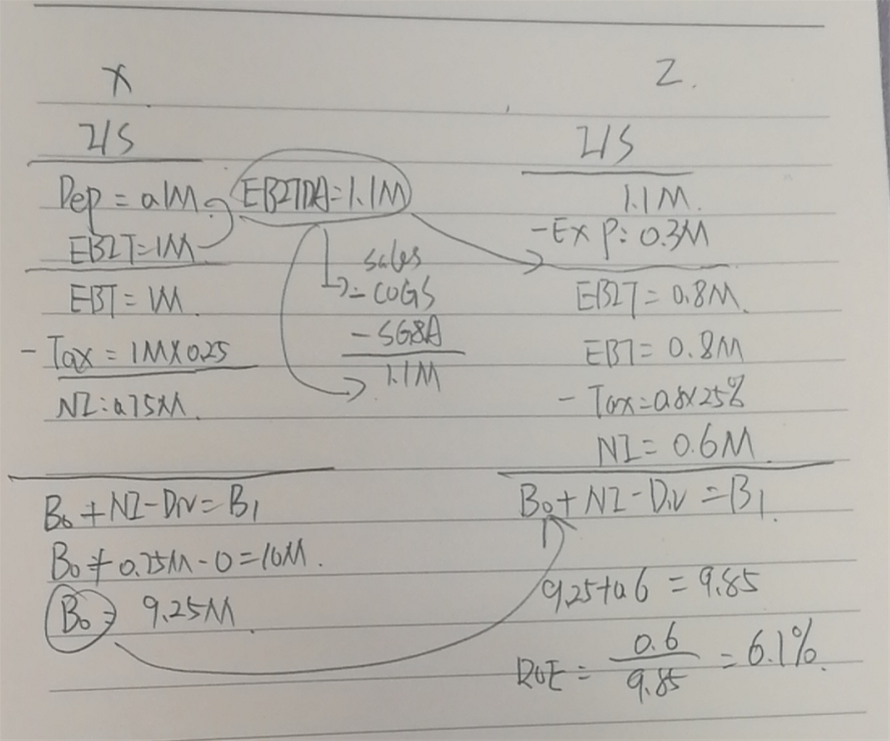 X
I/S
Dep = 0.1M
EBIT = 1M
EBITDA = 1.1M
EBT = 1M
- Tax = 1M×0.25
NI: 0.75M
B₀ + NI - Div = B₁
B₀ + 0.75M - 0 = 10M.
B₀ = 9.25M
sales
- COGS
- SG&A
1.1M
Z.
I/S
1.1M.
- Exp: 0.3M
EBIT = 0.8M.
EBT = 0.8M
- Tax = 0.8×25%
NI = 0.6M.
B₀ + NI - Div = B₁
9.25+0.6 = 9.85
ROE = 0.6/9.85 = 6.1%.